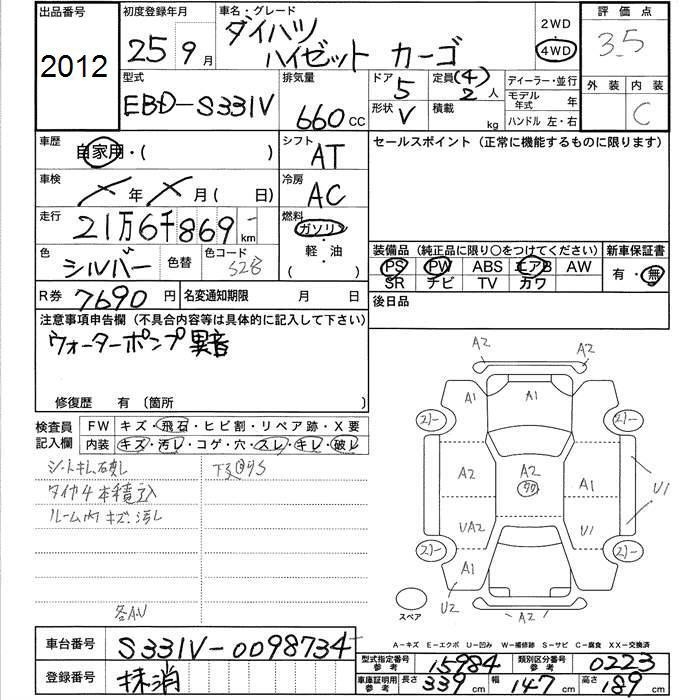 出品番号 初度登録年月 車名・グレード 2WD 評価点
2012 25年 9月 ダイハツ ハイゼット カーゴ 4WD 3.5
型式 排気量 ドア 定員(4) ディーラー・並行 外装 内装
EBD-S331V 660cc 5 2人 モデル年式 年 C
形状 V 積載 kg ハンドル 左・右
車歴 シフト セールスポイント(正常に機能するものに限ります)
自家用・( ) AT
車検 年 月( 日) 冷房 AC
走行 21万6千869km 燃料 ガソリン
色 シルバー 色替 色コード S28 軽・油 ( )
装備品(純正品に限り○をつけてください) 新車保証書
PS PW ABS エアB AW 有・無
SR ナビ TV カワ
R券 7690円 名変通知期限 月 日 後日品
注意事項申告欄(不具合内容等は具体的に記入して下さい)
ウォーターポンプ異音
修復歴 有 (箇所 )
検査員記入欄 FW キズ・飛石・ヒビ割・リペア跡・X要
内装 キズ・汚レ・コゲ・穴・スレ・キレ・破レ
シートキレ破レ
タイヤ4本積込
ルーム内キズ、汚レ
各A.U
A2 A2
A1 A1 A1
A2 A2 A1
UA2 U1 U1
A1
U2 A2
スペア
A-キズ E-エクボ U-凹み W-補修跡 S-サビ C-腐食 XX-交換済
車台番号 S331V-0098734
型式指定番号参考 15984 類別区分番号参考 0223
登録番号 抹消
車庫証明用参考 長さ 339cm 幅 147cm 高さ 189cm